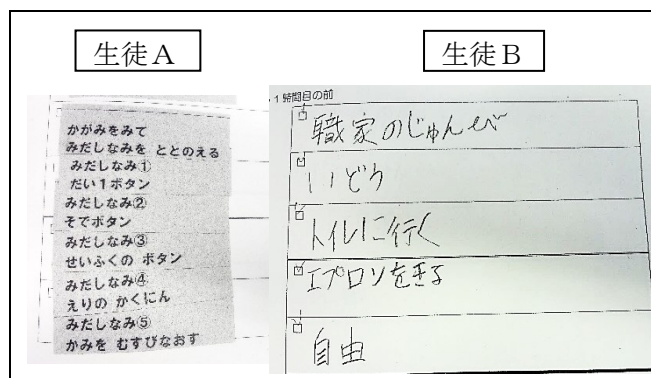 生徒A
かがみをみて
みだしなみを ととのえる
みだしなみ①
だい1ボタン
みだしなみ②
そでボタン
みだしなみ③
せいふくの ボタン
みだしなみ④
えりの かくにん
みだしなみ⑤
かみを むすびなおす
生徒B
1時間目の前
職家のじゅんび
いどう
トイレに行く
エプロンをきる
自由